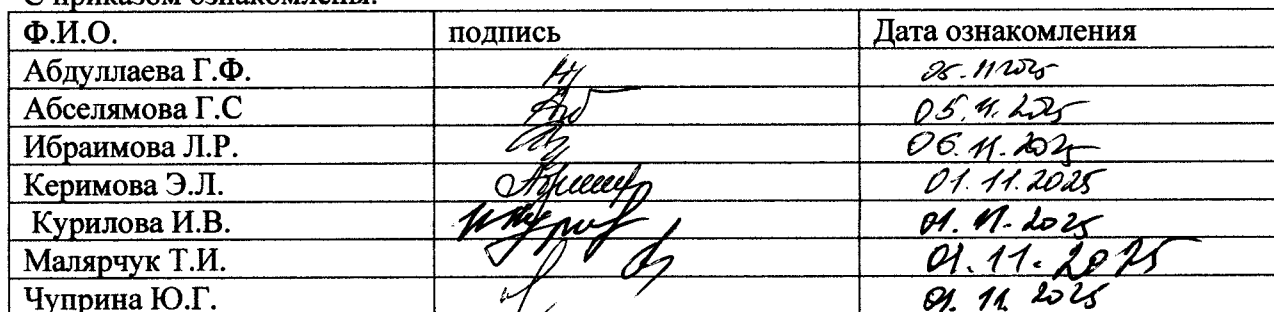 С приказом ознакомлены:
Ф.И.О. подпись Дата ознакомления
Абдуллаева Г.Ф. 05.11.2025
Абселямова Г.С 05.11.2025
Ибраимова Л.Р. 06.11.2025
Керимова Э.Л. 01.11.2025
Курилова И.В. 01.11.2025
Малярчук Т.И. 01.11.2025
Чуприна Ю.Г. 01.11.2025